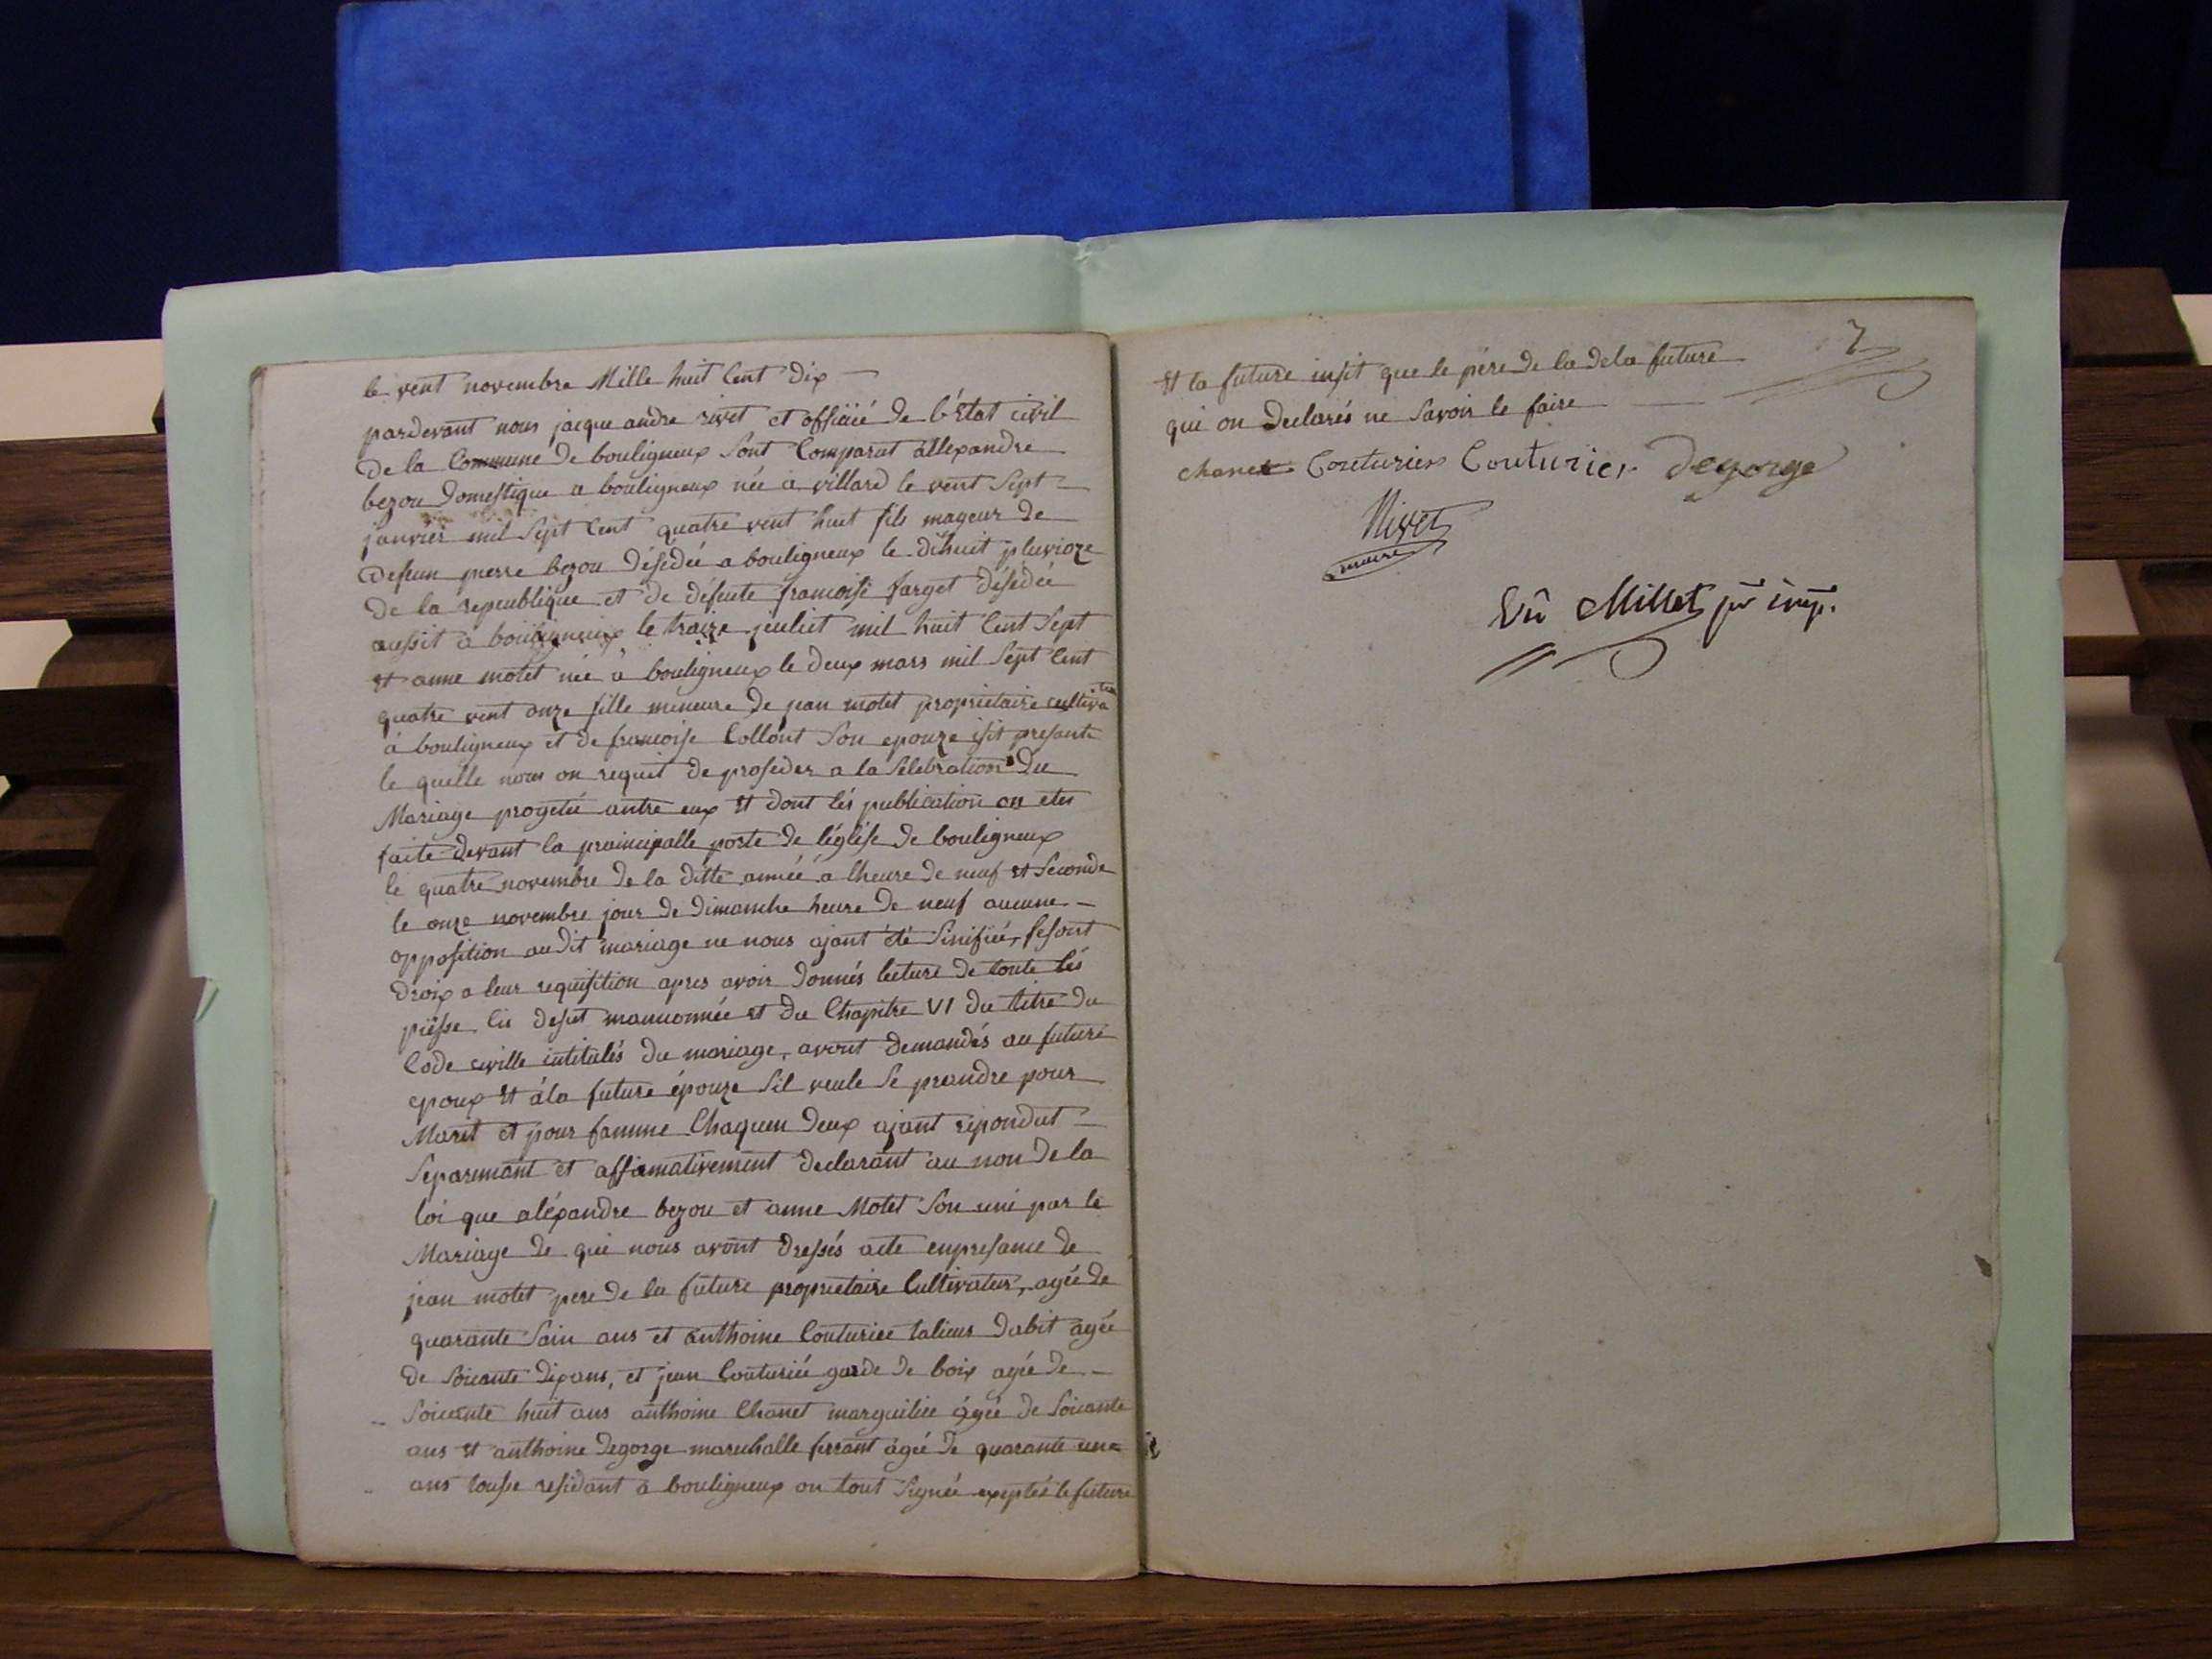 le vent novembre Mille huit Cent dix
pardevant nous jacque andre rivet et officiié de l'état civil
de la Commune de bouligneux Sont Comparut allexandre
bezou domestique a bouligneux née a villard le vent Sept
janvier mil Sept Cent quatre vent huit fils mageur de
defeun pierre bezou désédée a bouligneux le dihuit pluvioze
de la republique et de défeute francoise farget désédée
aussit a bouligneux le traize jeuliet mil huit Cent Sept
et anne motet née a bouligneux le deux mars mil Sept Cent
quatre vent onze fille mineure de jean motet proprietaire cultivateur
à bouligneux et de francoise Collont Son epouze isit presante
le quelle nous on requit de proséder a la Sélébration du
Mariage progetée antre eux et dont lés publication on etes
faite devant la prainicipalle porte de léglise de bouligneux
le quatre novembre de la ditte année a lheure de neuf et Seconde
le onze novembre jour de dimanche heure de neuf aucune
opposition audit mariage ne nous ajant été Sinifiée, fesont
droix a leur requisition apres avoir donnés lecture de toute lés
piésse Cis desut manuonnée et du Chapitre VI du titre du
Code civille intitulés du mariage, avont demandés au future
epoux et à la future épouze Sil veule Se prandre pour
Marit et pour famme Chaqueun deux ajant repondut
Séparemant et affirmativement declarant au non de la
loi que aléxandre bezou et anne Motet Son uni par le
Mariage de qui nous avont dressés acte enpresance de
jean motet pere de la future proprietaire Cultivateur, agée de
quarante Sain ans et anthoine Couturiee talieur dabit agée
de Soicante dix ans, et jean Couturiée garde de boix agée de
Soicante huit ans anthoine Chanet marguiliee agée de Soicante
ans et anthoine degorge marechalle ferrant agée de quarante un
ans tousse residant a bouligneux on tout Signée exeptés le future
7
et la future insit que le père de la dela future
qui on declarés ne Savoir le faire
chanet Couturier Couturier degorge
Rivet
maire
Vû Millet pr imp.